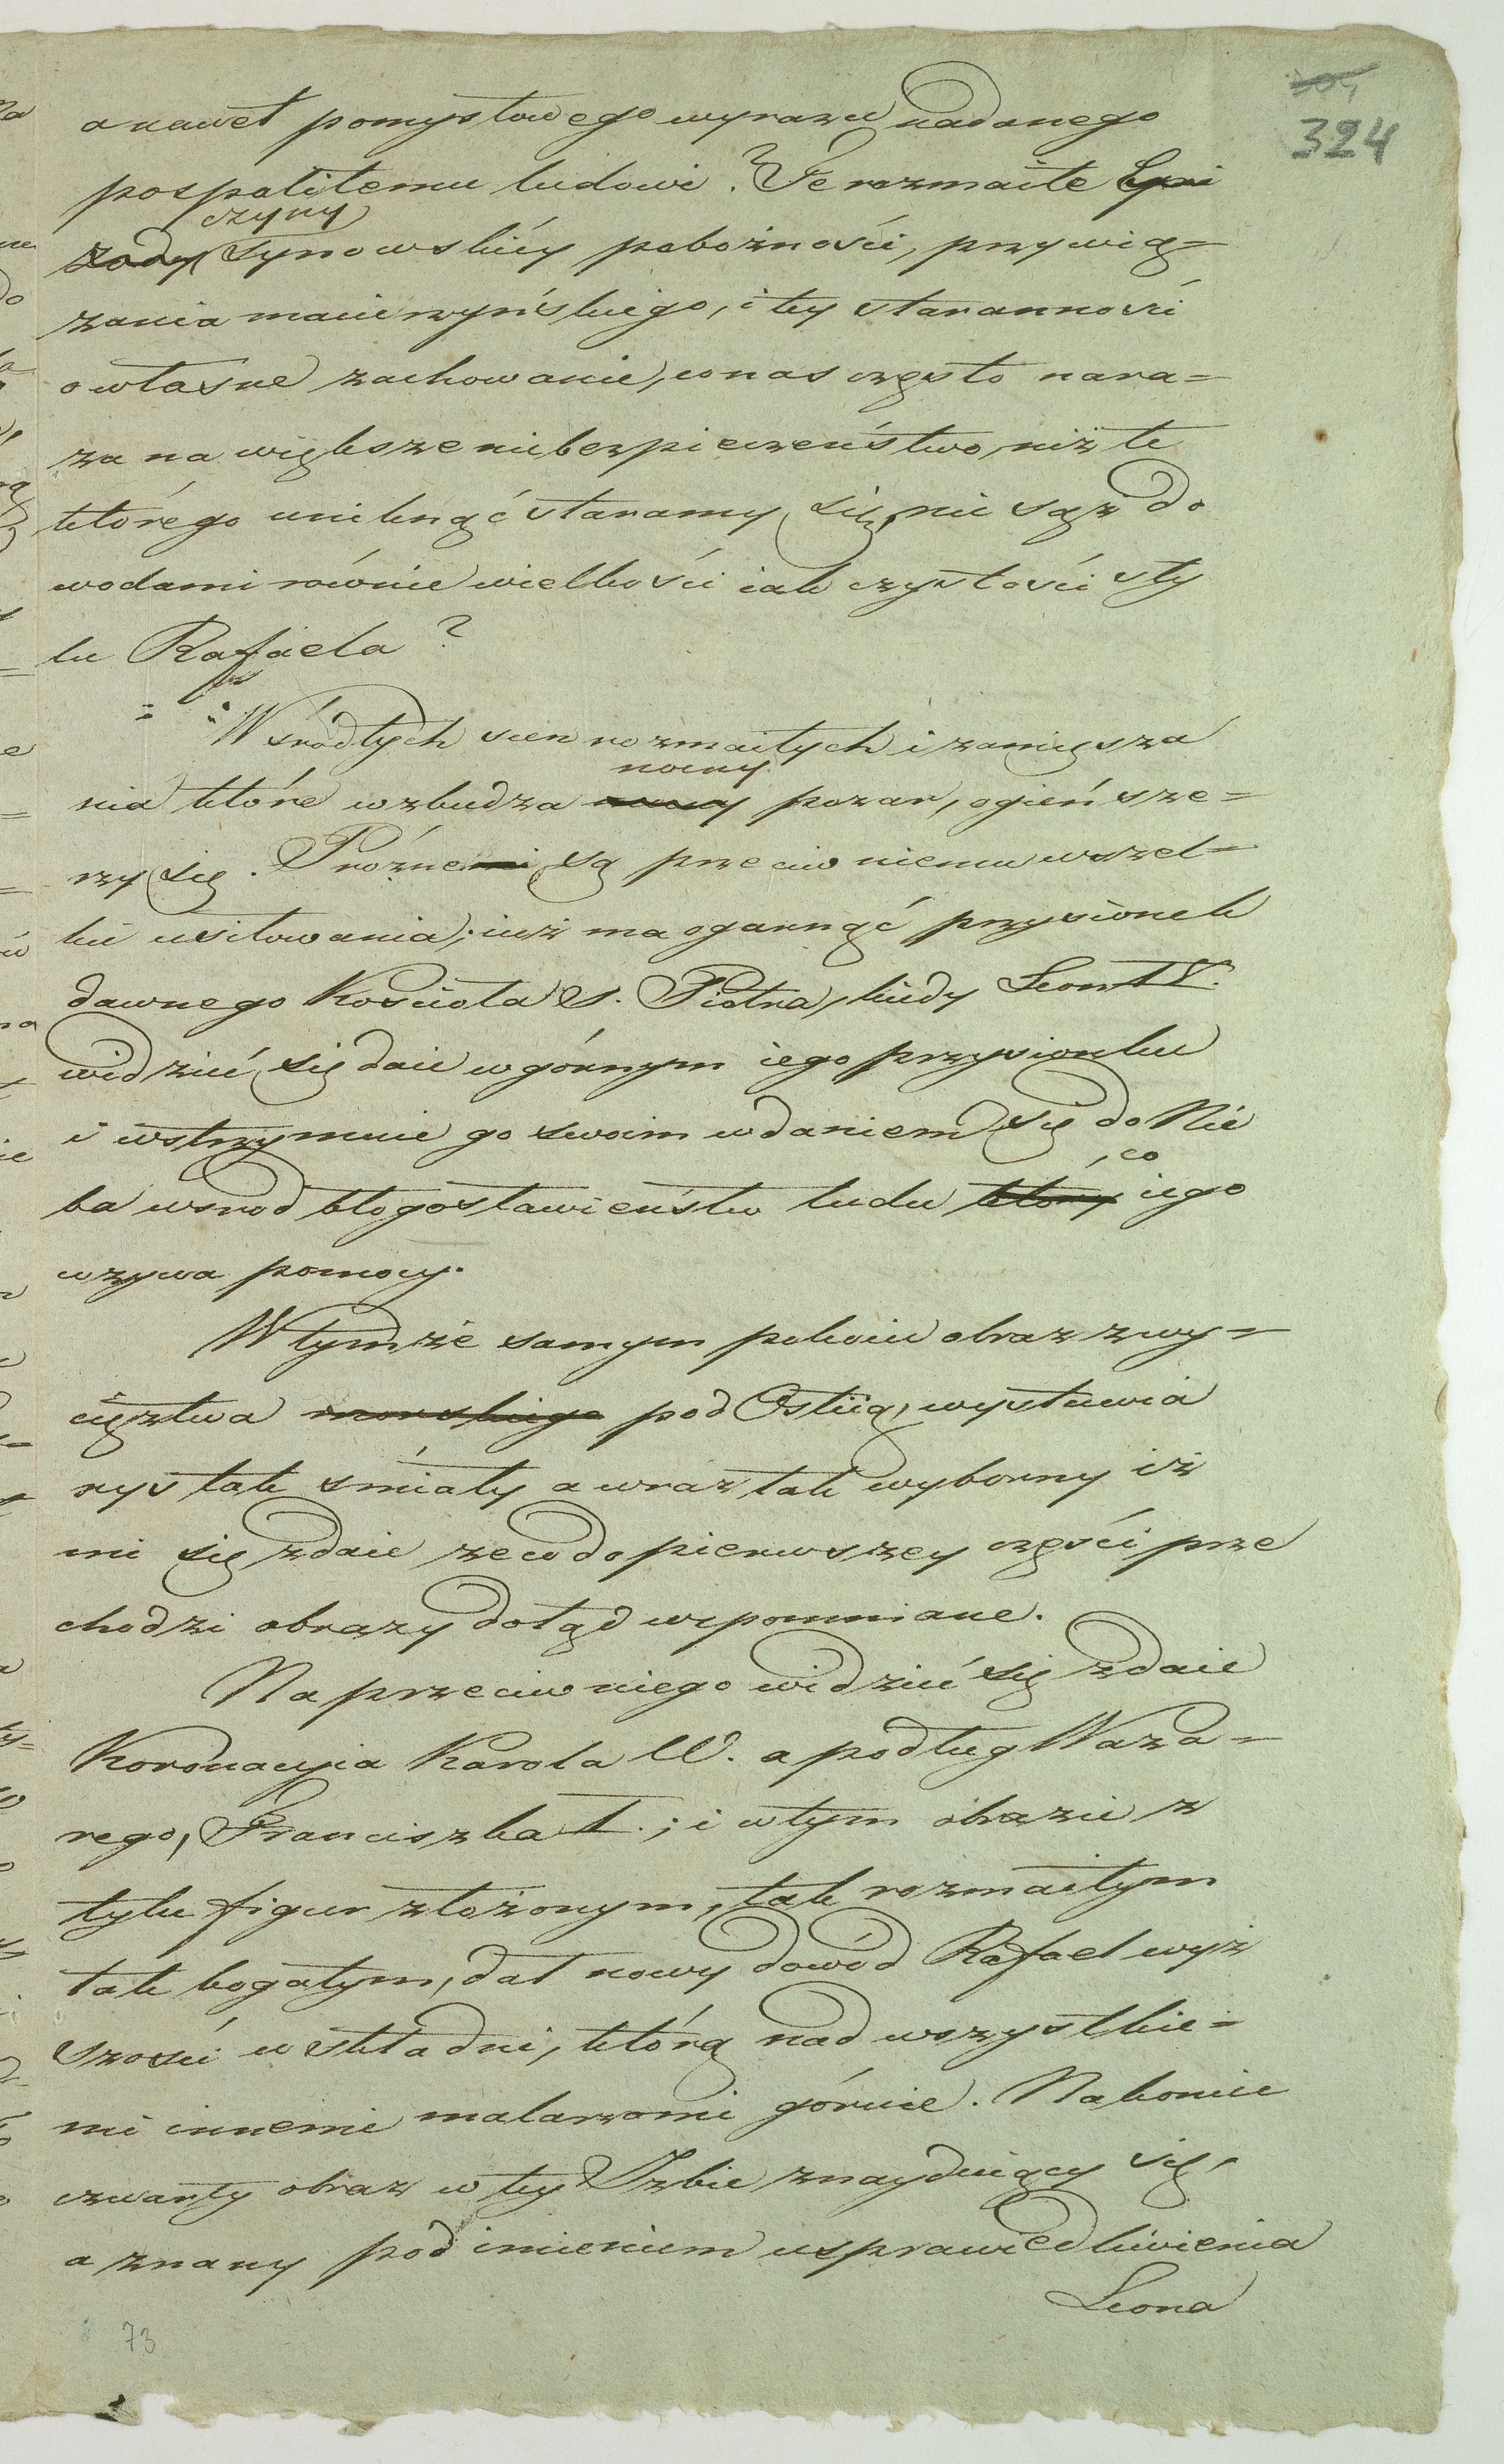 324
a nawet pomysłowego wyrazu nadanego
pospolitemu ludowi? Te rozmaite Epi
zody czyny synowskiéy pobożności, przywią=
zania macierzyńskiego, i tey staranności
o własne zachowanie, co nas często nara=
za na większe niebezpieczeństwo, niż te
którego uniknąć staramy się, nie sąż do
wodami równie wielkości iak czystości sty
lu Rafaela?
Wśród tych scen rozmaitych i zamięsza
nia które wzbudza nowy nocny pozar, ogień sze=
rzy się. Prózne są przeciw niemu wszel=
kie usiłowania; iuż ma ogarnąć przysionek
dawnego Kościoła S. Piotra, kiedy Leon IV.
widzieć się daie w górnym iego przysionku
i wstrzymuie go swoim udaniem się do Nie
ba wsrod błogosławieństw ludu który, co iego
wzywa pomocy.
W tymże samym pokoiu obraz zwy=
cięztwa morskiego pod Ostiią, wystawia
rys tak śmiały a wraz tak wyborny iż
mi się zdaie ze co do pierwszey części prze
chodzi obrazy dotąd wspomniane.
Na przeciw niego widzieć się zdaie
Koronacyia Karola W. a podług Waza=
rego, Franciszka I.; i w tym obrazie z
tylu figur złożonym, tak rozmaitym
tak bogatym, dał nowy dowód Rafael wyż
szości w składni, którą nad wszystkie=
mi innemi malarzami góruie. Nakoniec
czwarty obraz w tey Izbie znayduiący się,
a znany pod imieniem usprawiedliwienia
Leona
73